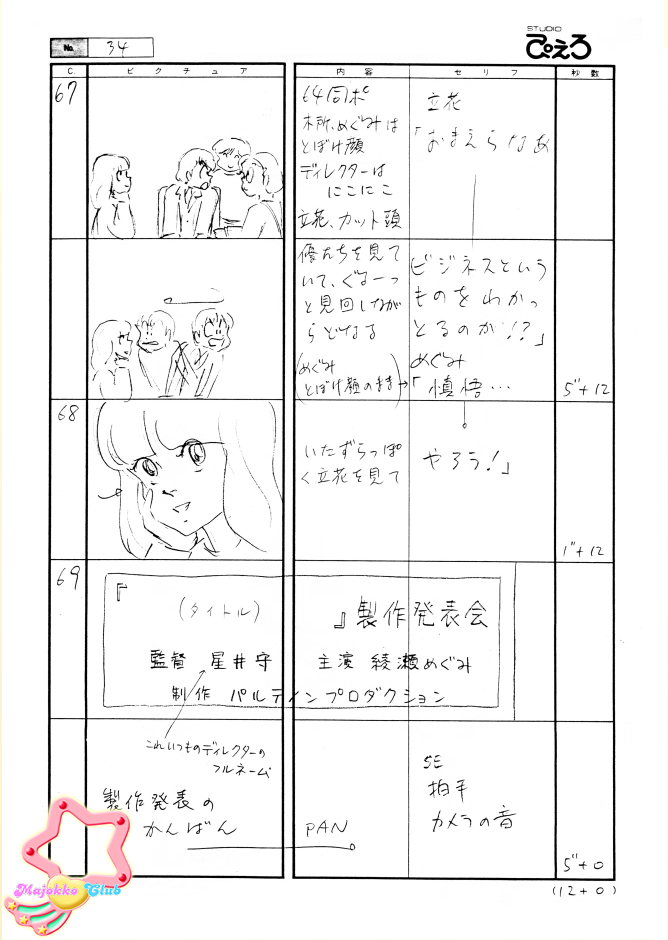 No. 34
STUDIO
ぴえろ
C. ピクチュア 内容 セリフ 秒数
67
64同ポ
木所、めぐみは
とぼけ顔
ディレクターは
にこにこ
立花、カット頭
立花
「おまえらなあ
優たちを見て
いて、ぐるーっ
と見回しなが
らどなる
(めぐみ
とぼけ顔のまま)
ビジネスという
ものをわかっ
とるのか!?」
めぐみ
「慎悟…
5"+12
68
いたずらっぽ
く立花を見て
やろう!」
1"+12
69
『
(タイトル)
』製作発表会
監督 星井守 主演 綾瀬めぐみ
制作 パルティンプロダクション
これいつものディレクターの
フルネーム
製作発表の
かんばん
PAN
SE
拍手
カメラの音
5"+0
(12+0)
Majokko Club